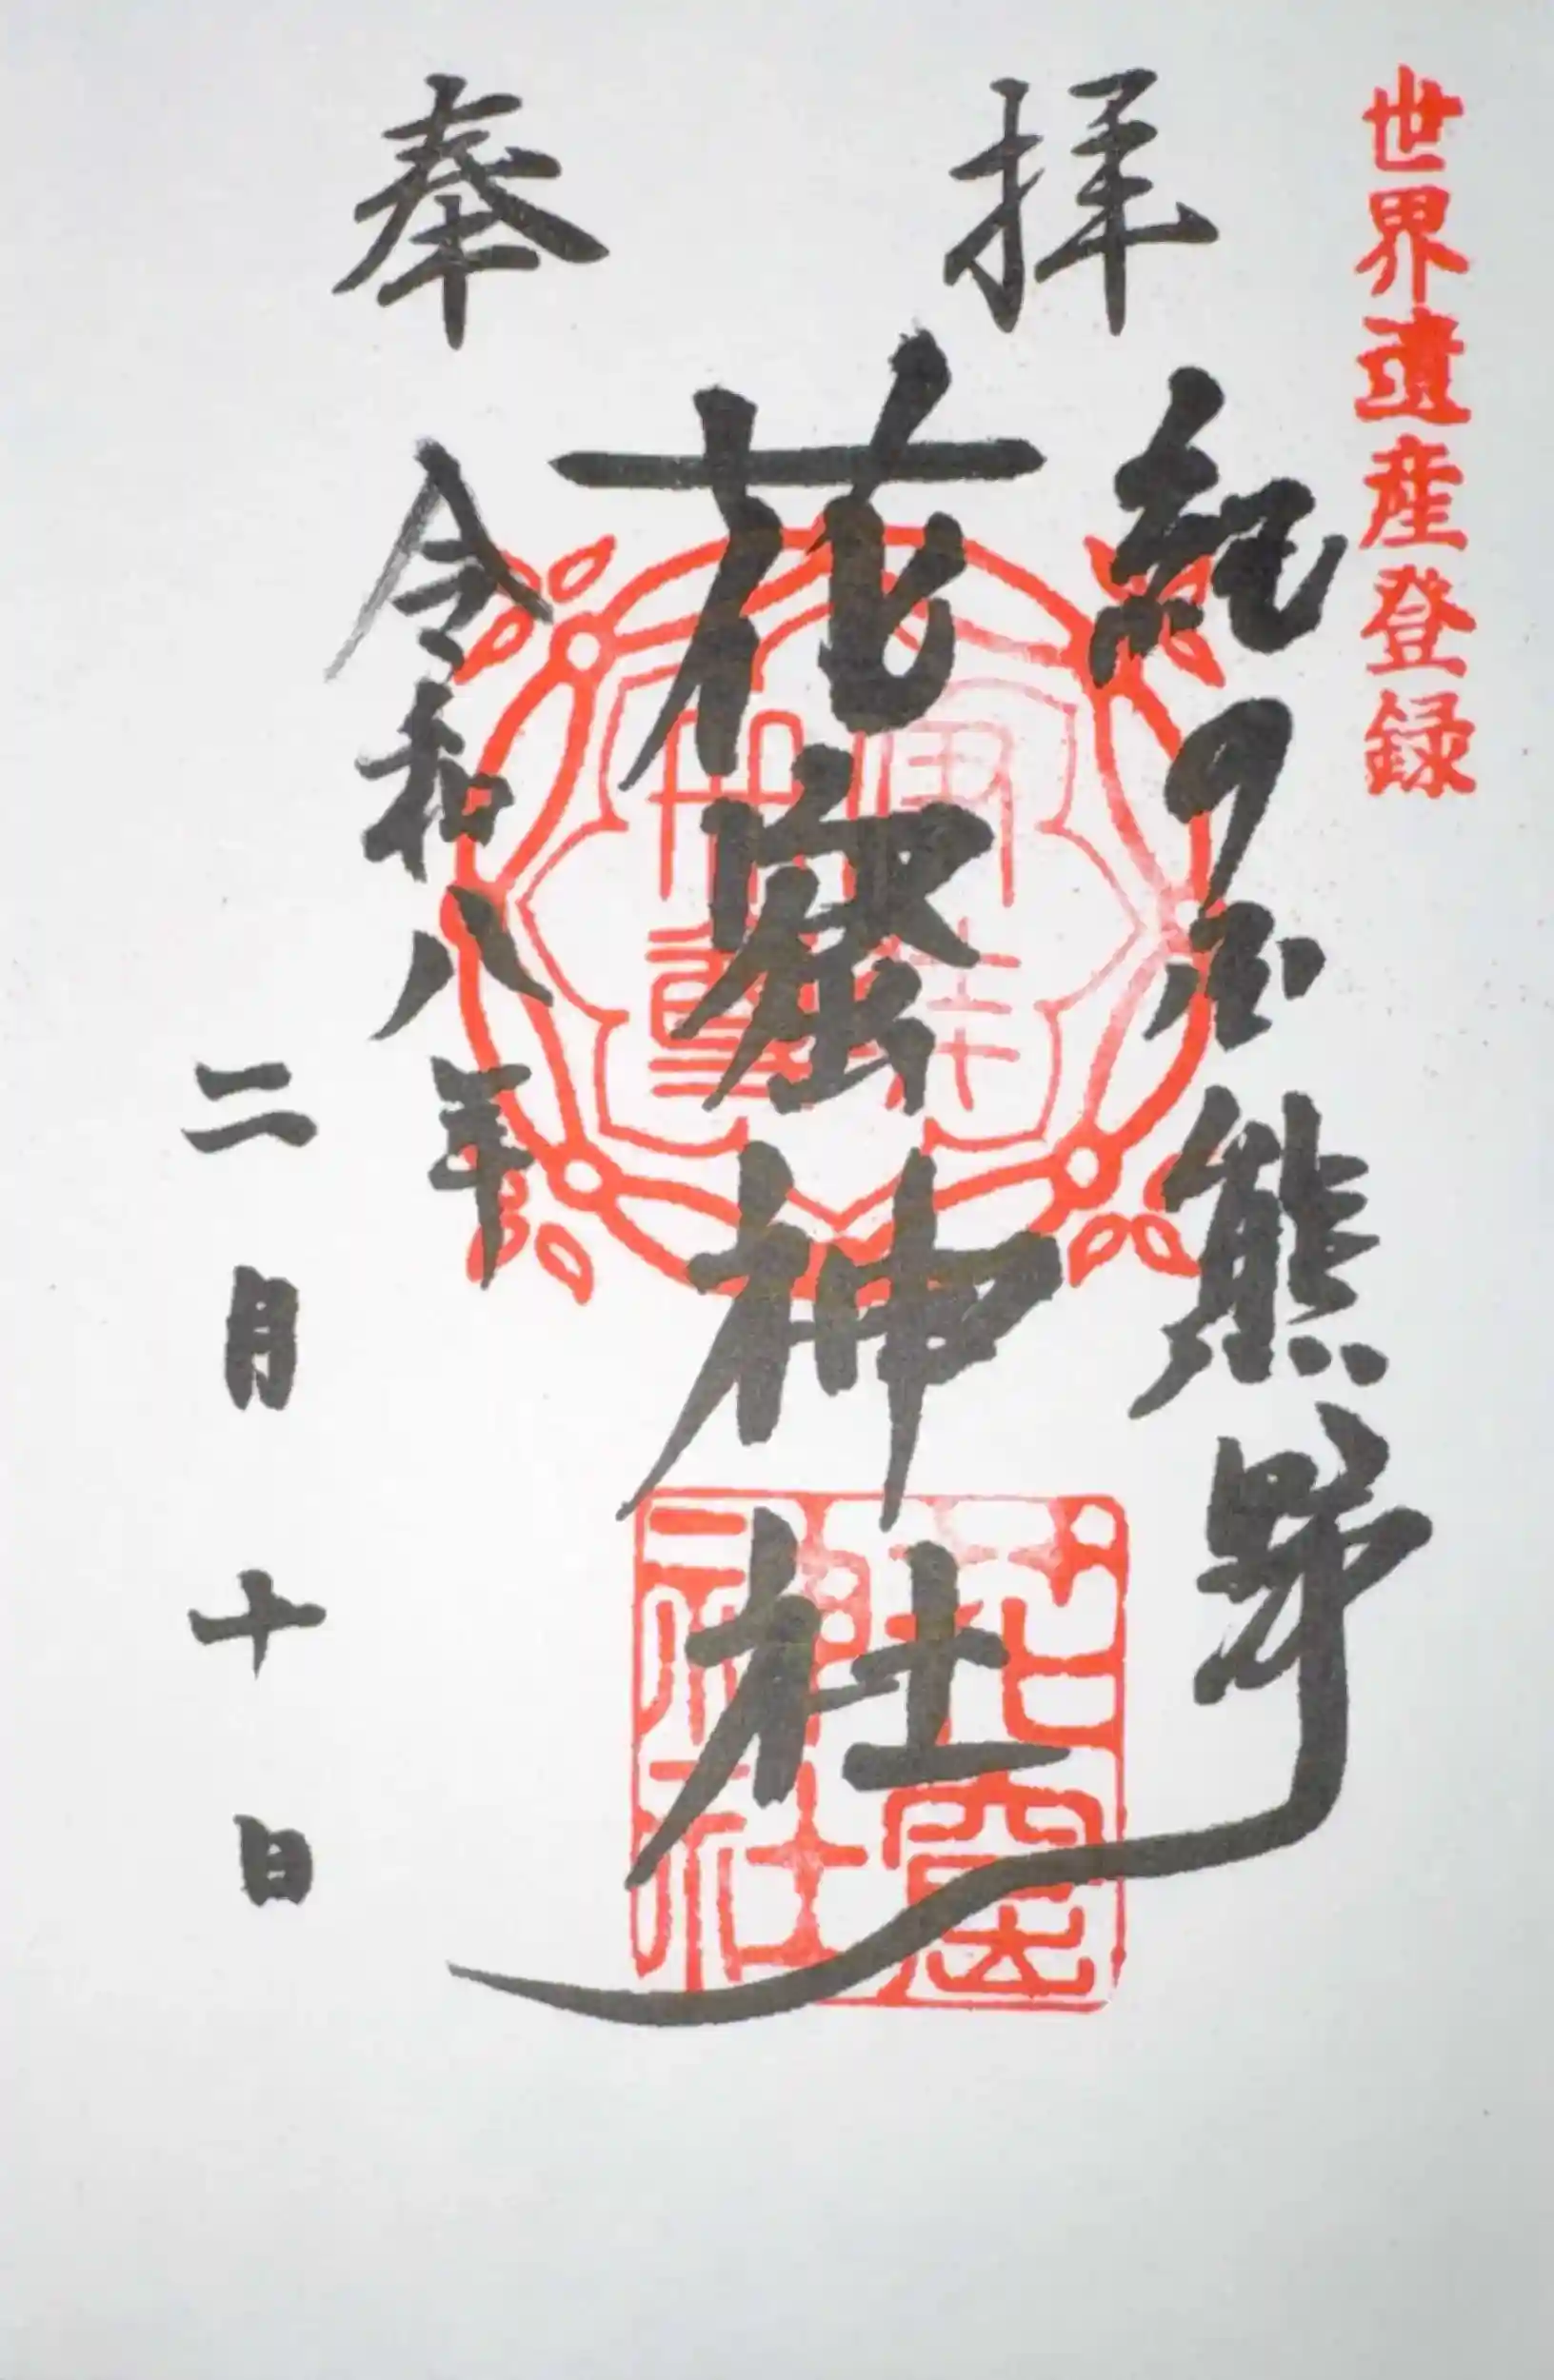 世界遺産登録
奉拝
紀の国熊野
花窟神社
令和八年
二月十日
伊弉冊尊
花窟神社